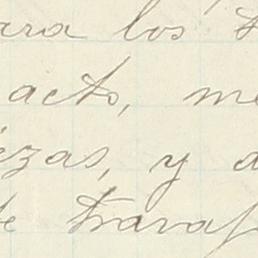 ara los
acto, me
ezas, y a
te travaj